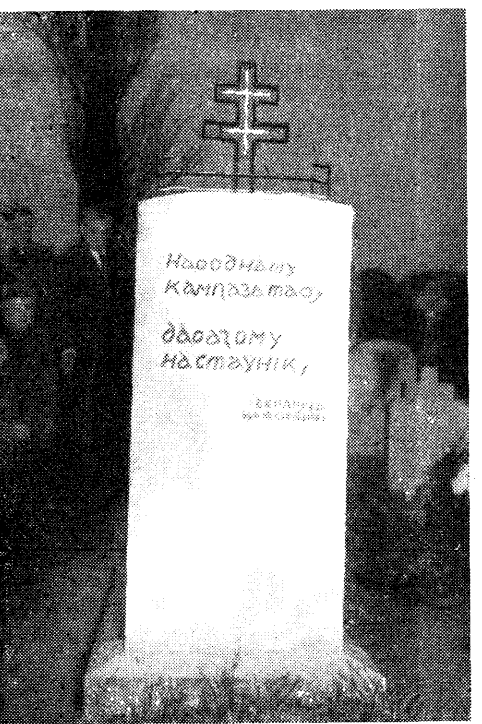 Народнаму
кампазітару,
дарагому
настаўніку,